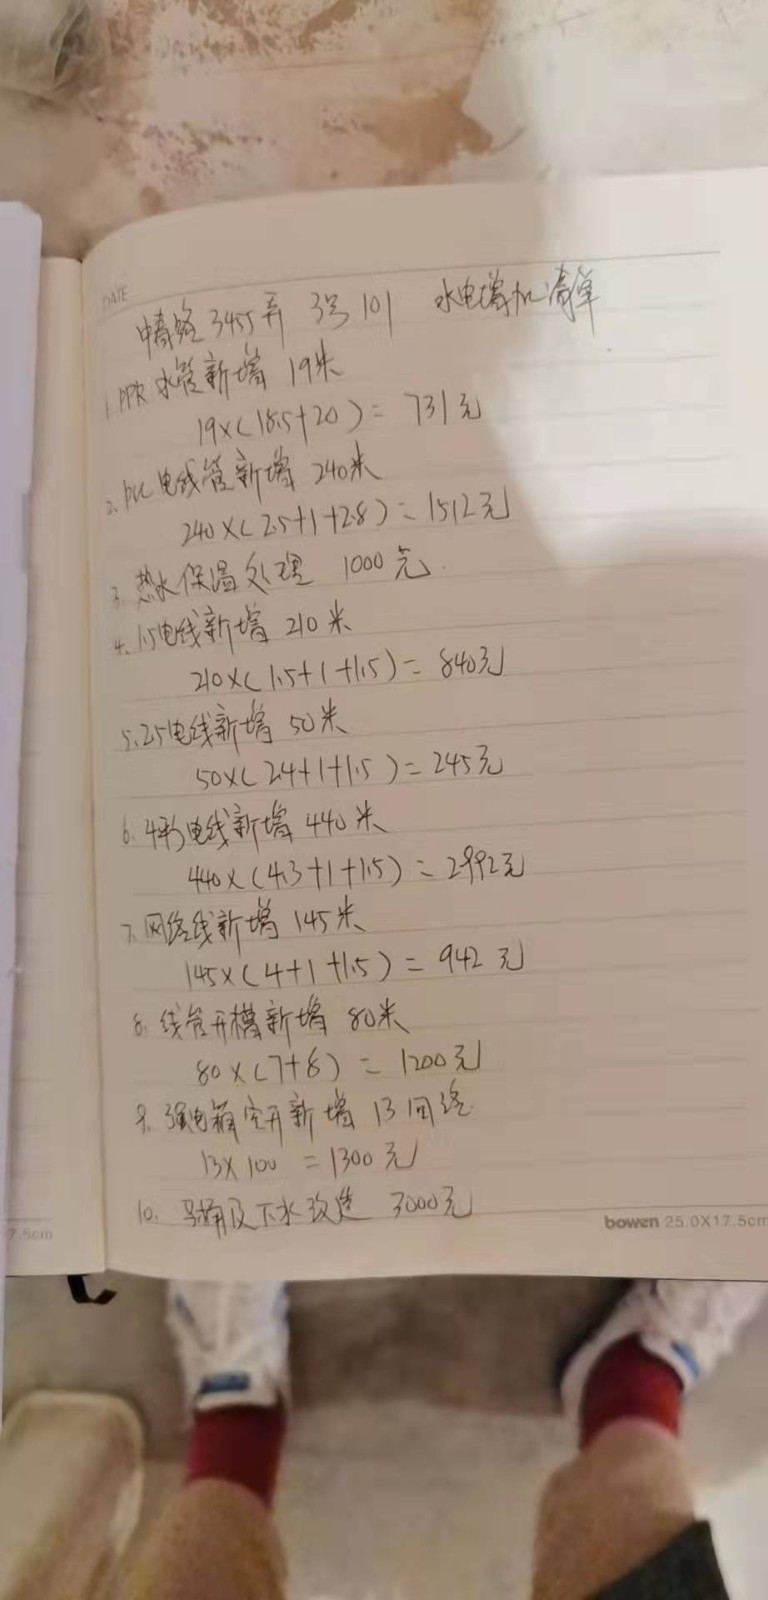 DATE
中春路3455弄 3号101 水电增加清单
1. PPR 水管新增 19米
19×(18.5+20)= 731元
2. PVC 电线管新增 240米
240×(2.5+1+2.8)= 1512元
3. 热水保温处理 1000元.
4. 1.5电线新增 210米
210×(1.5+1+1.5)= 840元
5. 2.5电线新增 50米
50×(2.4+1+1.5)= 245元
6. 4平方电线新增 440米
440×(4.3+1+1.5)= 2992元
7. 网络线新增 145米
145×(4+1+1.5)= 942元
8. 线管开槽新增 80米
80×(7+8)= 1200元
9. 强电箱空开新增 13回路
13×100 =1300元
10. 马桶及下水改造 3000元
7.5cm
bowen 25.0X17.5cm